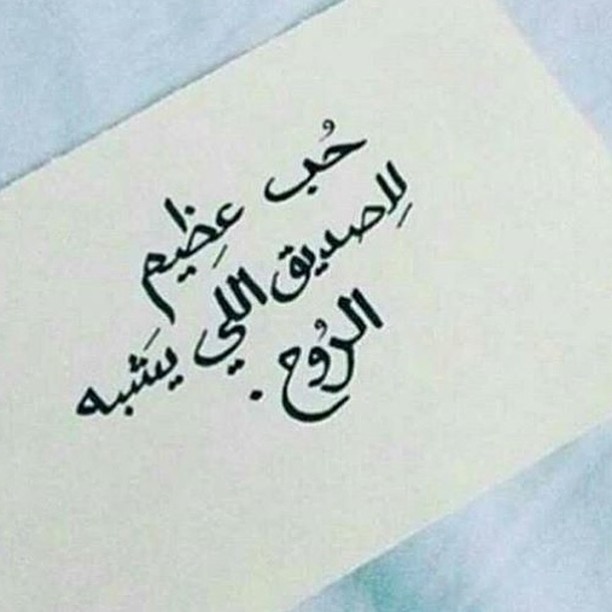 حُب عظِيم
لِلصديق اللي يشَبه
الرُوح.